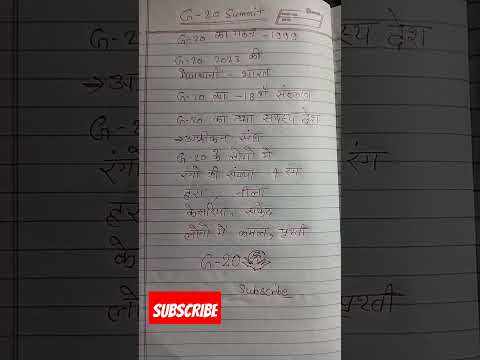 G-20 Summit
G-20 का गठन - 1999
G-20 2023 की
मेजबानी - भारत
G-20 का - 18 वें संस्करण
G-20 का नया सदस्य देश
→ अफ्रीकन संघ
G-20 के लोगो में
रंगो की संख्या 4 रंग
हरा, नीला
केसरिया, सफेद
लोगो में कमल, पृथ्वी
G-20
Subscribe
SUBSCRIBE